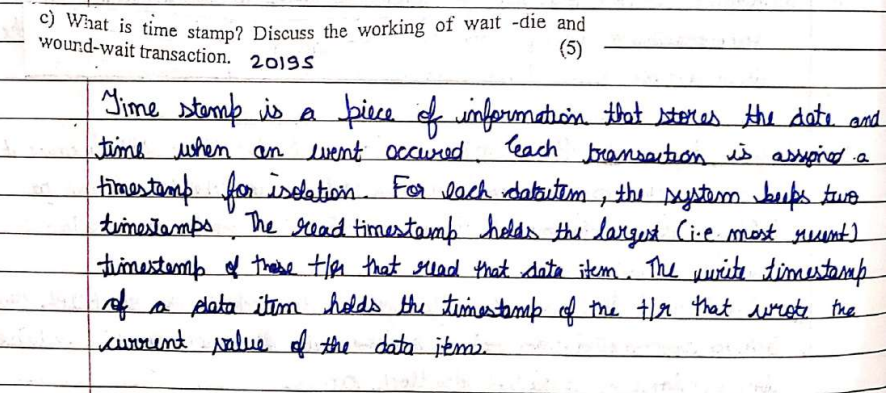 c) What is time stamp? Discuss the working of wait -die and
wound-wait transaction. 2019S (5)
Time stamp is a piece of information that stores the date and
time when an event occured. Each transaction is assigned a
timestamp for isolation. For each dataitem, the system keeps two
timestamps. The read timestamp holds the largest (i.e. most recent)
timestamp of those t/r that read that data item. The write timestamp
of a data item holds the timestamp of the t/r that wrote the
current value of the data item.